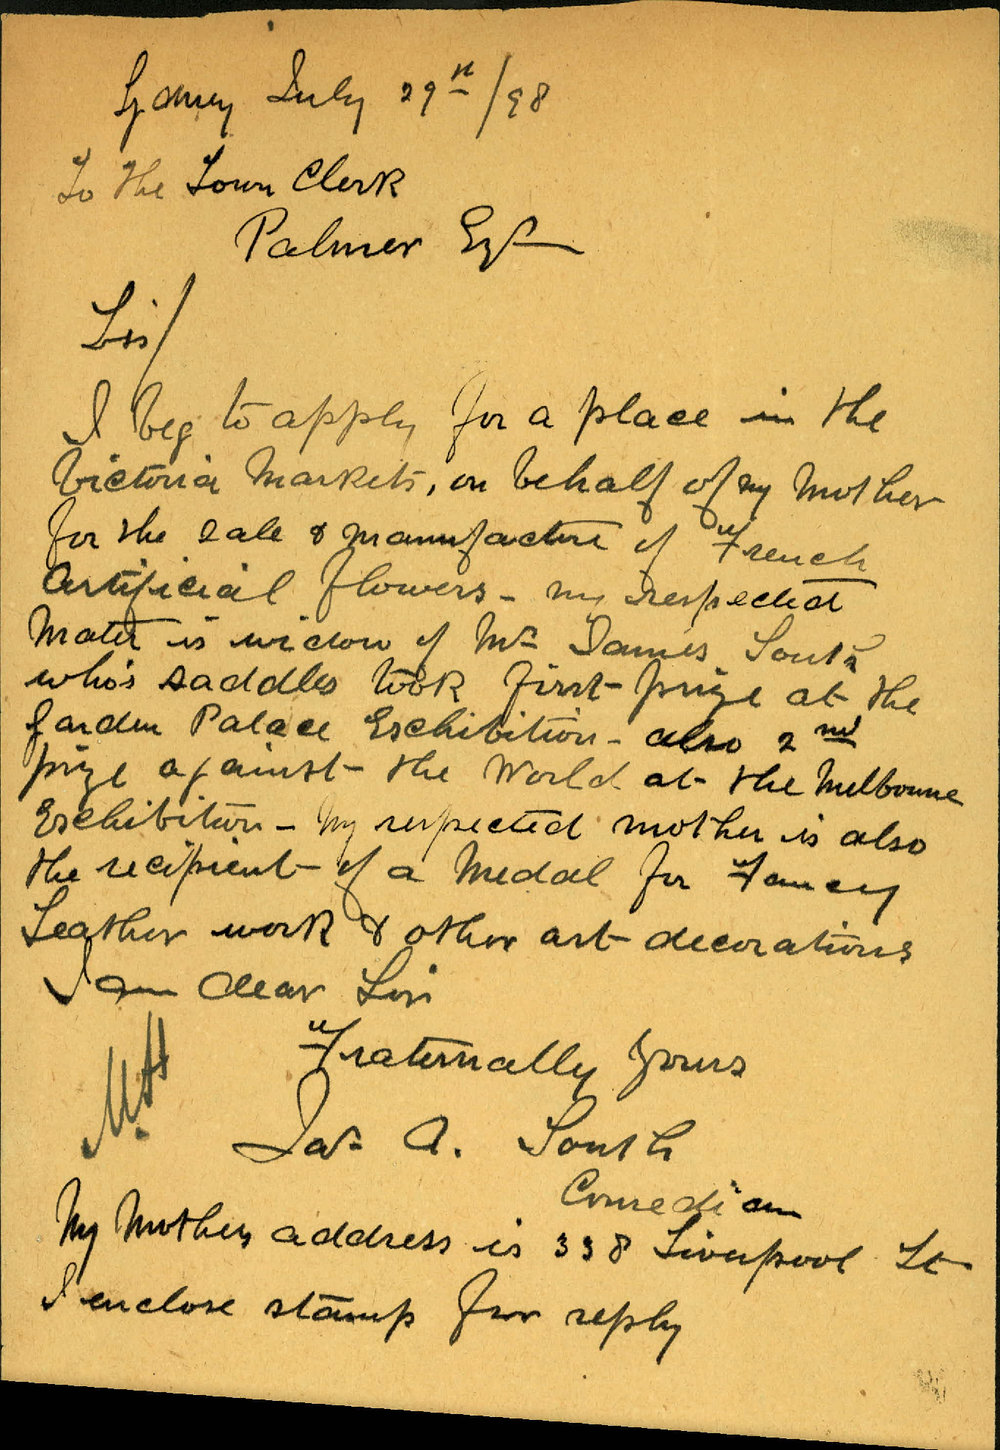 Sydney July 29th/98
To the Town Clerk
Palmer Esqr
Sir/
I beg to apply for a place in the
Victoria Markets, on behalf of my Mother
for the sale & manufacture of French
Artificial flowers - my respected
Mater is widow of Mr James South
who's saddles took first prize at the
Garden Palace Exhibition - also 2nd
prize against the World at the Melbourne
Exhibition - My respected mother is also
the recipient of a Medal for Fancy
Leather work & other art decorations
I am dear Sir
Fraternally Yours
Jas A. South
Comedian
My Mothers address is 338 Liverpool St
I enclose stamp for reply